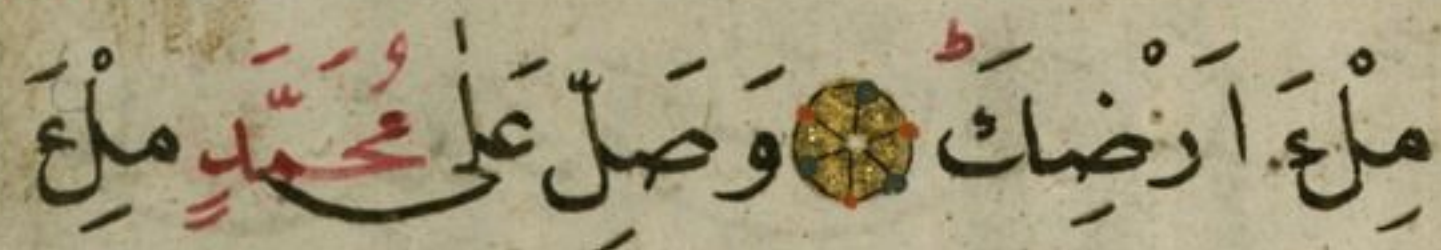 مِلْءَ اَرْضِكَ ط وَصَلِّ عَلٰى مُحَمَّدٍ مِلْءَ